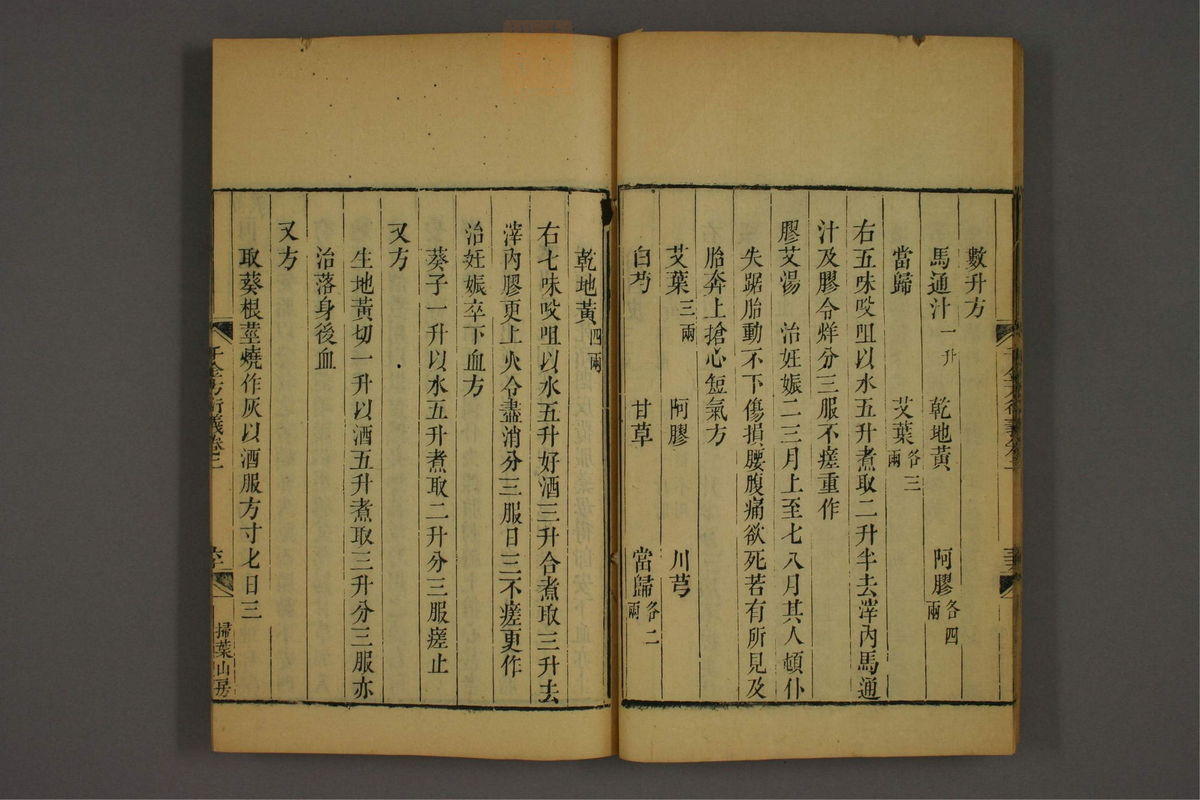 數升方
馬通汁一升 乾地黃 阿膠各四兩
當歸 艾葉各三兩
右五味㕮咀以水五升煮取二升半去滓內馬通
汁及膠令烊分三服不瘥重作
膠艾湯 治妊娠二三月上至七八月其人頓仆
失踞胎動不下傷損腰腹痛欲死若有所見及
胎奔上搶心短氣方
艾葉三兩 阿膠 川芎
白芍 甘草 當歸各二兩
乾地黃四兩
右七味㕮咀以水五升好酒三升合煮取三升去
滓內膠更上火令盡消分三服日三不瘥更作
治妊娠卒下血方
葵子一升以水五升煮取二升分三服瘥止
又方
生地黃切一升以酒五升煮取三升分三服亦
治落身後血
又方
取葵根莖燒作灰以酒服方寸匕日三
千金方衍義卷二
掃葉山房